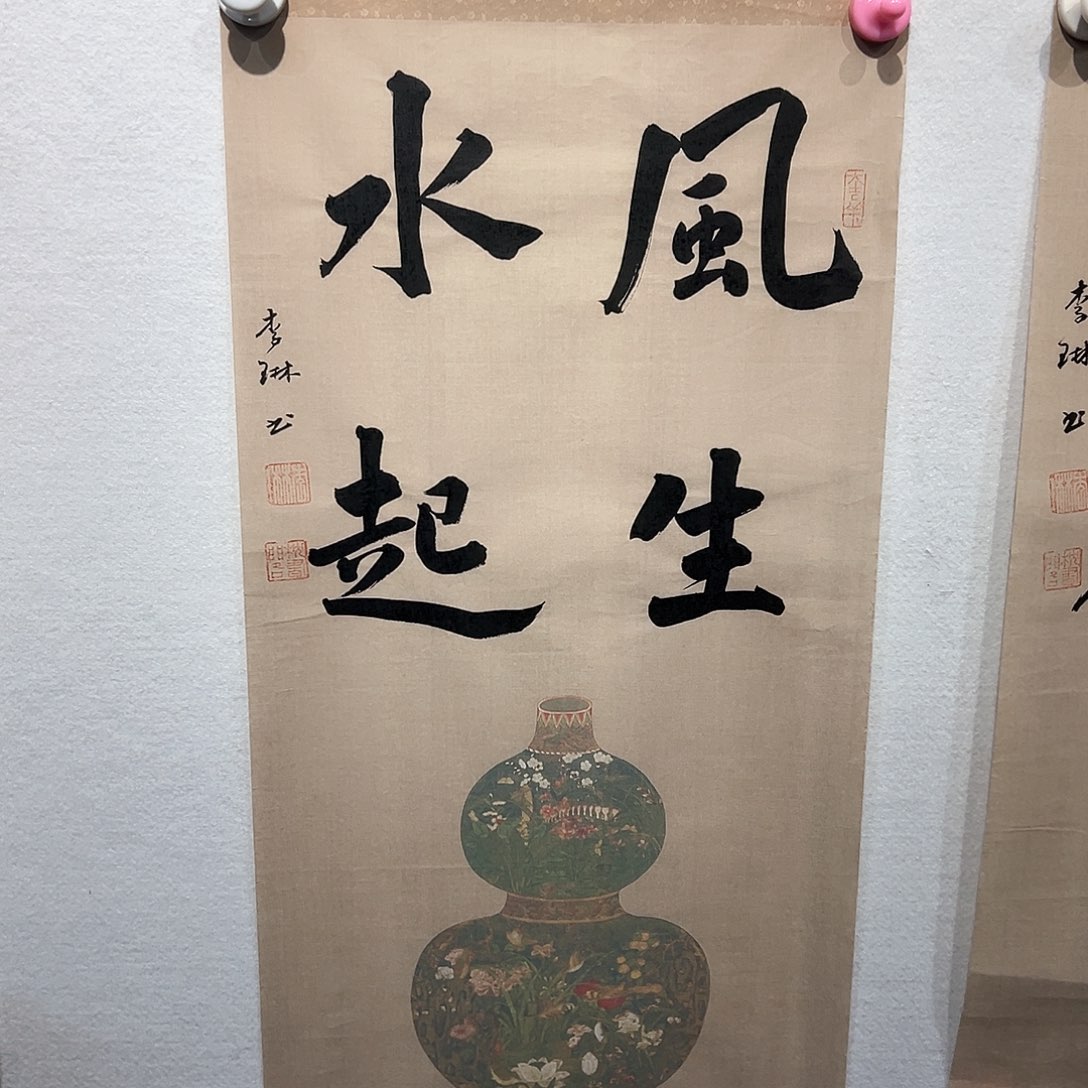 風生
水起
李琳书
李琳书